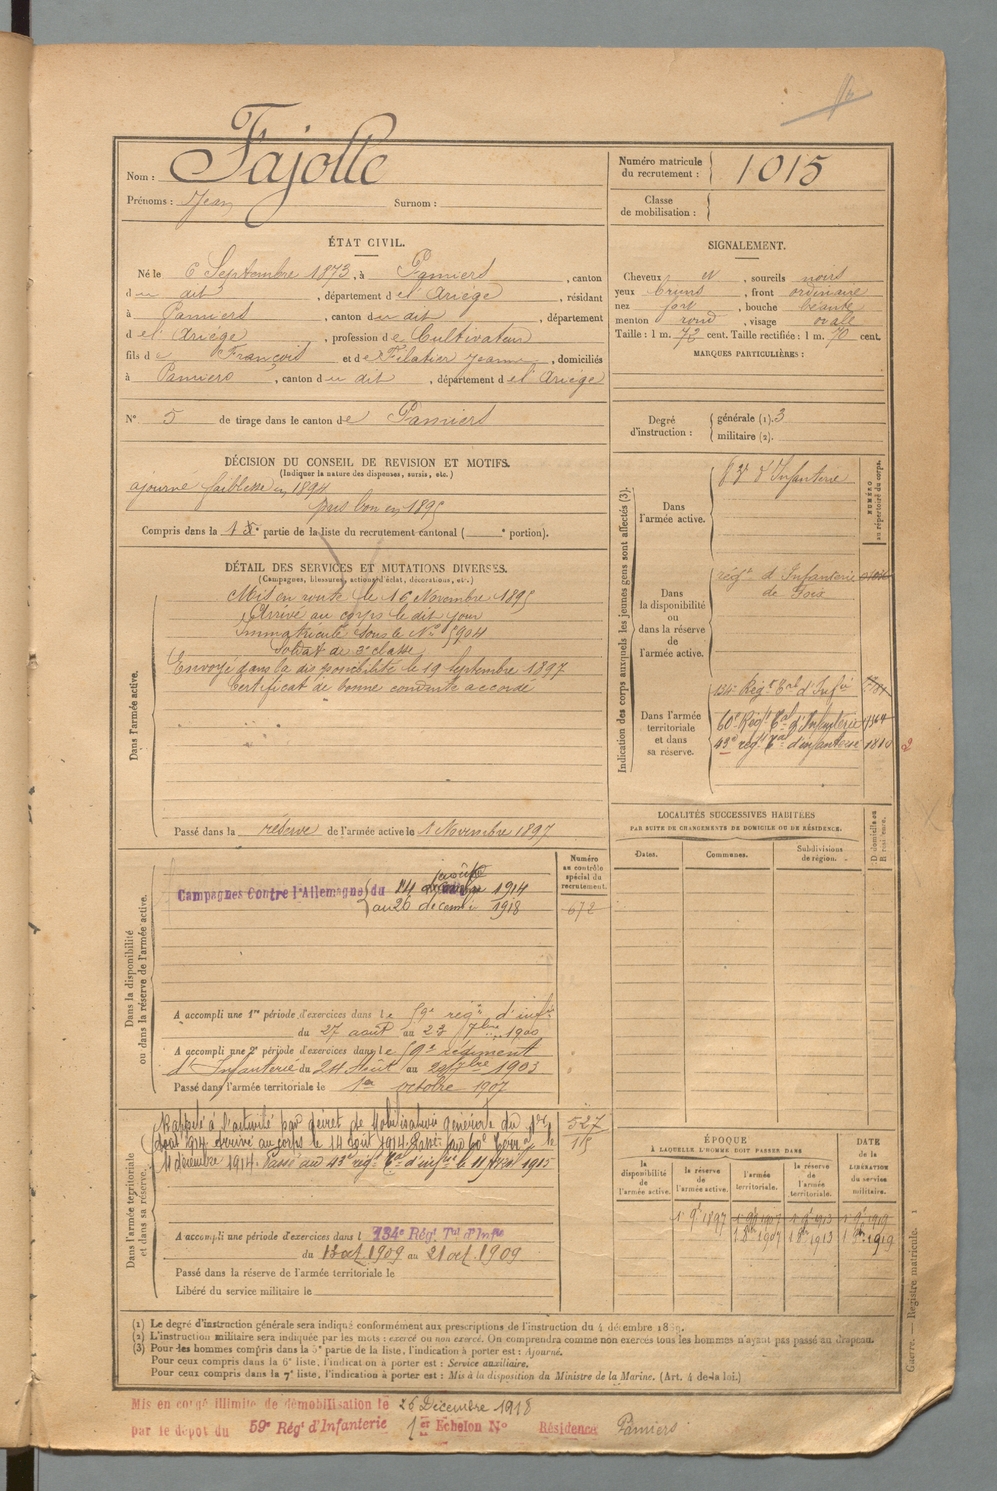 Nom : Fajolle
Prénoms : Jean Surnom :
Numéro matricule du recrutement : 1015
Classe de mobilisation :
ÉTAT CIVIL.
Né le 6 Septembre 1873, à Pamiers, canton
du dit, département de l'Ariège, résidant
à Pamiers, canton du dit, département
de l'Ariège, profession de Cultivateur
fils de François et de Pelatier Jeanne, domiciliés
à Pamiers, canton du dit, département de l'Ariège
N° 5 de tirage dans le canton de Pamiers
SIGNALEMENT.
Cheveux et, sourcils noirs
yeux bruns, front ordinaire
nez fort, bouche béante
menton rond, visage ovale
Taille : 1 m. 72 cent. Taille rectifiée : 1 m. 70 cent.
MARQUES PARTICULIÈRES :
Degré d'instruction :
générale (1). 3
militaire (2).
DÉCISION DU CONSEIL DE REVISION ET MOTIFS.
(Indiquer la nature des dispenses, sursis, etc.)
ajourné faiblesse en 1894
pris bon en 1895
Compris dans la 1e partie de la liste du recrutement cantonal ( e portion).
DÉTAIL DES SERVICES ET MUTATIONS DIVERSES.
(Campagnes, blessures, actions d'éclat, décorations, etc.)
Dans l'armée active.
Mis en route le 16 Novembre 1895
Arrivé au corps le dit jour
Immatriculé sous le No 5904
Soldat de 2e classe
Envoyé dans la disponibilité le 19 Septembre 1897
Certificat de bonne conduite accordé
Passé dans la réserve de l'armée active le 1 Novembre 1897
Indication des corps auxquels les jeunes gens sont affectés (3).
NUMÉRO au répertoire du corps.
Dans l'armée active.
d'Infanterie
Dans la disponibilité ou dans la réserve de l'armée active.
régt d'Infanterie
de Foix
Dans l'armée territoriale et dans sa réserve.
134e Régt Tal d'Infie
60e Régt Tal d'Infanterie 4364
43e régt Tal d'infanterie 1810
LOCALITÉS SUCCESSIVES HABITÉES
PAR SUITE DE CHANGEMENTS DE DOMICILE OU DE RÉSIDENCE.
Dates. Communes. Subdivisions de région. D domicile ou R résidence.
Dans la disponibilité ou dans la réserve de l'armée active.
Numéro au contrôle spécial du recrutement.
672
Campagnes Contre l'Allemagne du 14 août 1914
au 26 décembre 1918
A accompli une 1re période d'exercices dans le 59e régt d'infie
du 27 août au 23 7bre 1900
A accompli une 2e période d'exercices dans le 59e régiment
d'Infanterie du 24 Août au 7bre 1903
Passé dans l'armée territoriale le 1er octobre 1907
Dans l'armée territoriale et dans sa réserve.
Rappelé à l'activité par décret de Mobilisation générale du 1er
août 1914 arrivé au corps le 14 août 1914. Passé au 60e Terral le
11 décembre 1914. Passé au 43e régt Tal d'infie le 11 1915
527
115
A accompli une période d'exercices dans l 134e Régt Tal d'Infie
du 13 oct. 1909 au 21 oct. 1909
Passé dans la réserve de l'armée territoriale le
Libéré du service militaire le
ÉPOQUE
À LAQUELLE L'HOMME DOIT PASSER DANS
la disponibilité de l'armée active. la réserve de l'armée active. l'armée territoriale. la réserve de l'armée territoriale.
DATE de la LIBÉRATION du service militaire.
1 9bre 1897 1 9bre 1907 1 9bre 1913 1 9bre 1919
1 8bre 1907 1 8bre 1913 1 8bre 1919
(1) Le degré d'instruction générale sera indiqué conformément aux prescriptions de l'instruction du 4 décembre 1889.
(2) L'instruction militaire sera indiquée par les mots : exercé ou non exercé. On comprendra comme non exercés tous les hommes n'ayant pas passé au drapeau.
(3) Pour les hommes compris dans la 5e partie de la liste, l'indication à porter est : Ajourné.
Pour ceux compris dans la 6e liste, l'indication à porter est : Service auxiliaire.
Pour ceux compris dans la 7e liste, l'indication à porter est : Mis à la disposition du Ministre de la Marine. (Art. 4 de la loi.)
Guerre. — Registre matricule. 1
Mis en congé illimité de démobilisation le 26 Décembre 1918
par le dépôt du 59e Régt d'Infanterie 1er Echelon No Résidence Pamiers